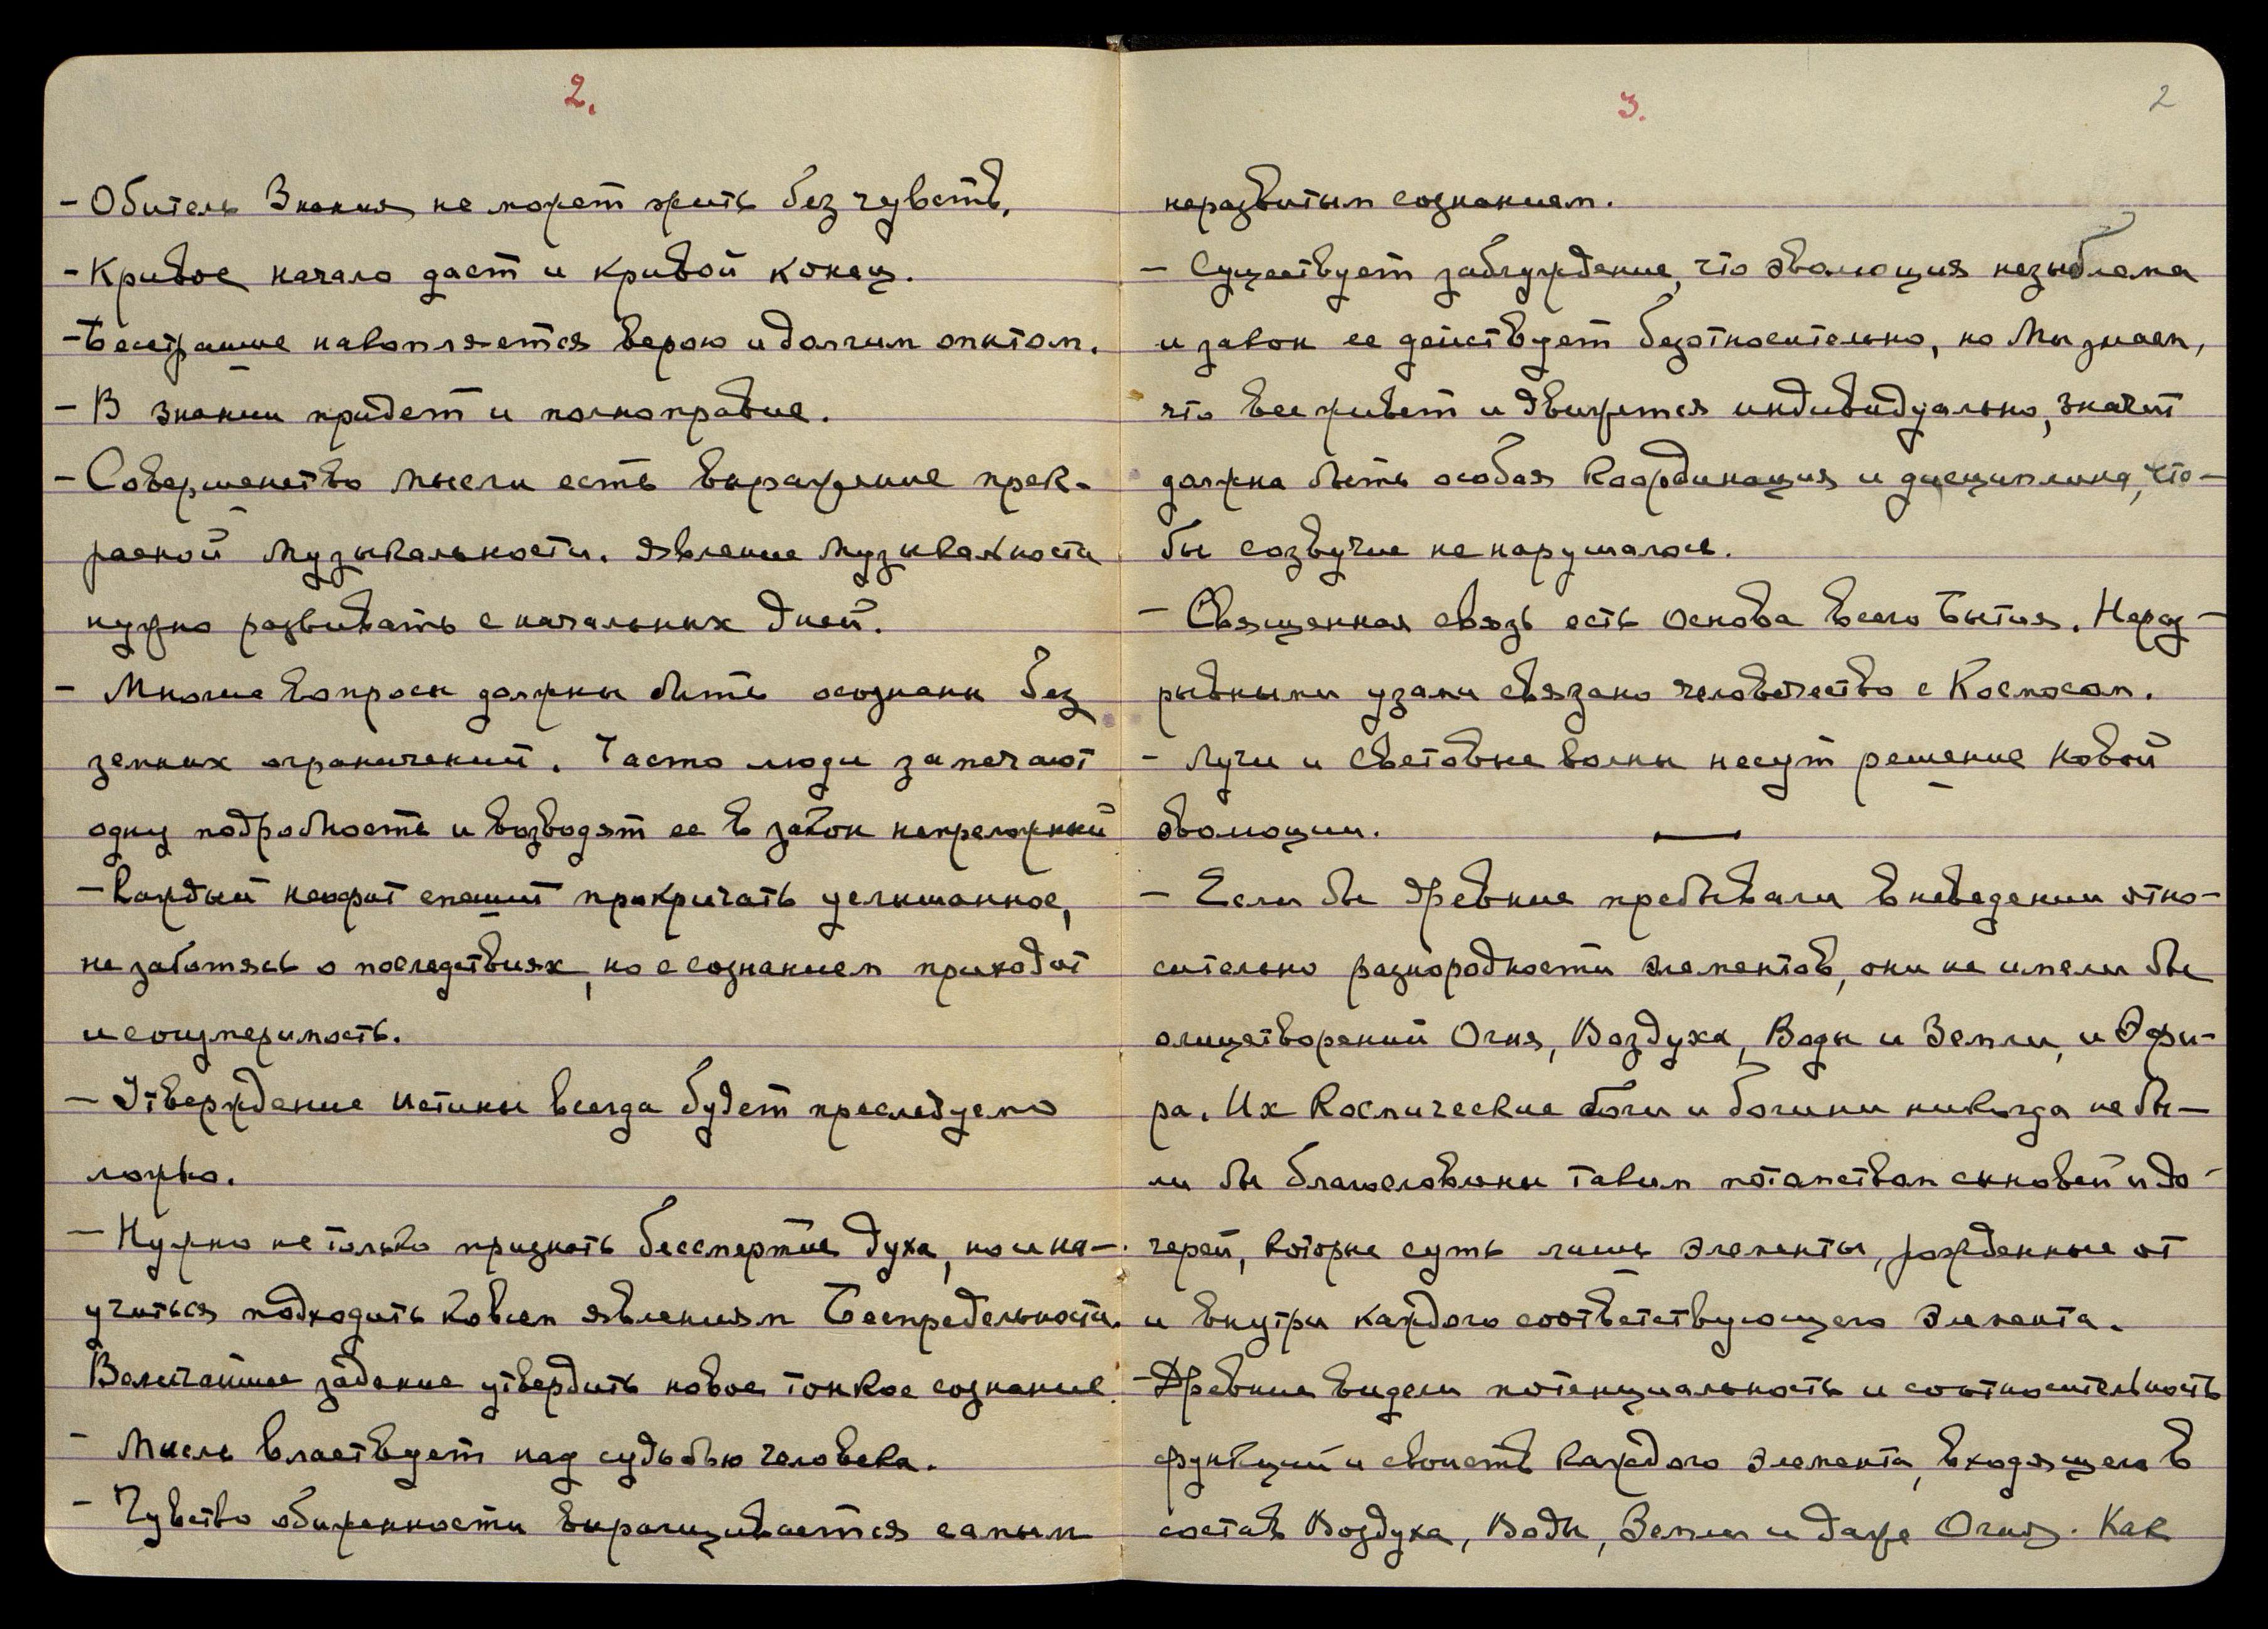 2.
- Обитель Знания не может жить без чувств.
- Кривое начало дает и кривой конец.
- Бесстрашие накопляется верою и долгим опытом.
- В знании придет и полноправие.
- Совершенство мысли есть выражение прек-
расной музыкальности. Явление музыкальности
нужно развивать с начальных дней.
- Многие вопросы должны быть осознаны без
земных ограничений. Часто люди замечают
одну подробность и возводят ее в закон непреложный
- Каждый неофит спешит прокричать услышанное,
не заботясь о последствиях, но с сознанием приходит
и соизмеримость.
- Утверждение истины всегда будет преследуемо
ложью.
- Нужно не только признать бессмертие духа, но и на-
учиться подходить ко всем явлениям Беспредельности.
Величайшее задание утвердить новое тонкое сознание.
- Мысль властвует над судьбою человека.
- Чувство обиженности выращивается самым
3.
2
неразвитым сознанием.
- Существует заблуждение, что эволюция незыблема
и закон ее действует безотносительно, но Мы знаем,
что все живет и движется индивидуально, значит
должна быть особая координация и дисциплина, что-
бы созвучие не нарушалось.
- Священная связь есть основа всего Бытия. Нераз-
рывными узами связано человечество с Космосом.
- Лучи и световые волны несут решение новой
эволюции.
- Если бы древние пребывали в неведении отно-
сительно разнородности элементов, они не имели бы
олицетворений Огня, Воздуха, Воды и Земли, и Эфи-
ра. Их космические боги и богини никогда не бы-
ли бы благословлены таким потомством сыновей и до-
черей, которые суть лишь элементы, рожденные от
и внутри каждого соответствующего элемента.
- Древние видели потенциальность и соотносительность
функций и свойств каждого элемента, входящего в
состав Воздуха, Воды, Земли и даже Огня. Как